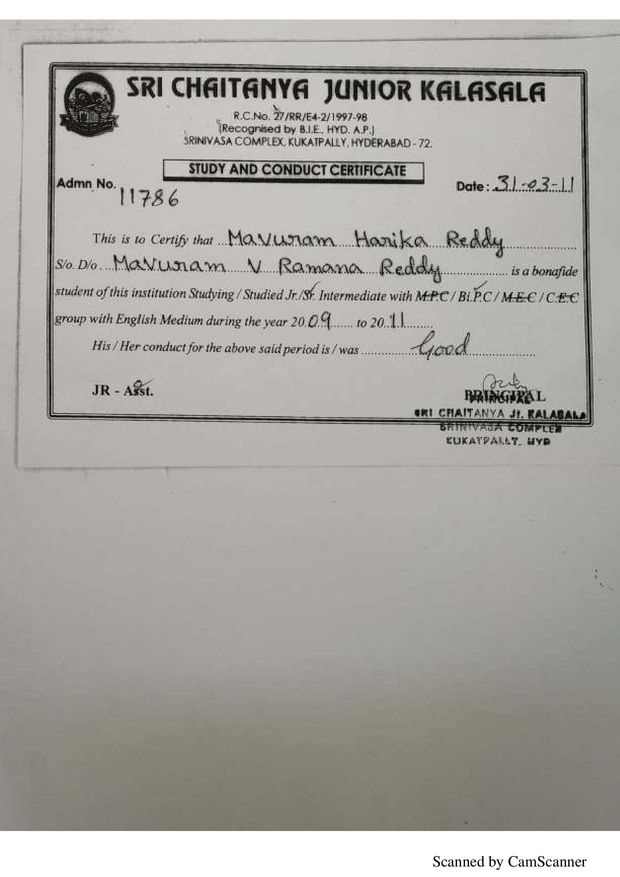 SRI CHAITANYA JUNIOR KALASALA
R.C.No. 27/RR/E4-2/1997-98
(Recognised by B.I.E., HYD. A.P.)
SRINIVASA COMPLEX, KUKATPALLY, HYDERABAD - 72.
STUDY AND CONDUCT CERTIFICATE
Admn No. 11786
Date: 31-03-11
This is to Certify that Mavuram Harika Reddy
S/o. D/o. Mavuram V Ramana Reddy is a bonafide
student of this institution Studying / Studied Jr./Sr. Intermediate with M.P.C / Bi.P.C / M.E.C / C.E.C
group with English Medium during the year 2009 to 2011
His / Her conduct for the above said period is / was Good
JR - Asst.
PRINCIPAL
SRI CHAITANYA Jr. KALASALA
SRINIVASA COMPLEX
KUKATPALLY, HYD
Scanned by CamScanner